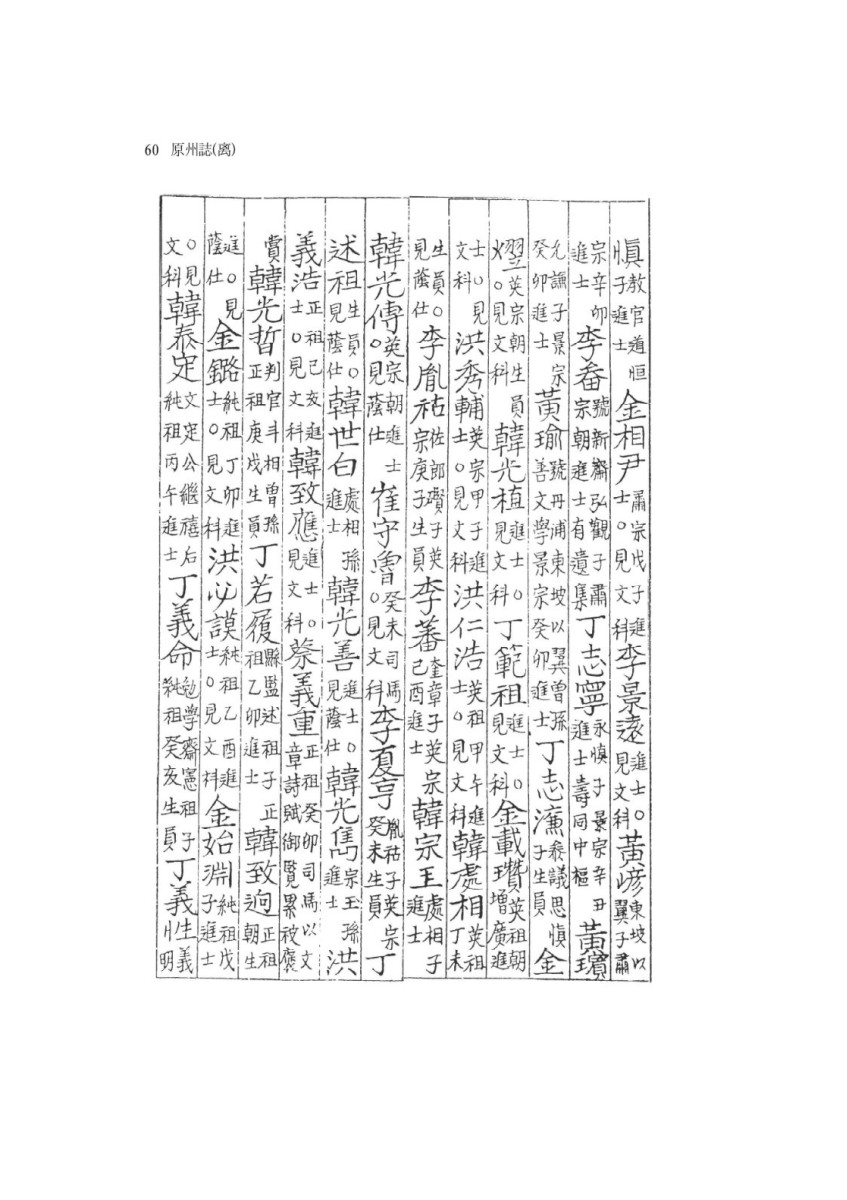 60 原州誌(离)
愼教官道恒子進士 金相尹肅宗戊子進士○見文科 李景遠進士○見文科 黃東坡以翼子肅
宗辛卯進士 李畨號新齋弘觀子肅宗朝進士有遺集 丁志寧永愼子景宗辛丑進士壽同中樞 黃璸
允謙子景宗癸卯進士 黃瑜號丹浦東坡以翼曾孫善文學景宗癸卯進士 丁志濂參議思愼子生員 金
熤英宗朝生員○見文科 韓光植進士○見文科 丁範祖進士○見文科 金載瓚英祖朝增廣進
士○見文科 洪秀輔英宗甲子進士○見文科 洪仁浩英祖甲午進士○見文科 韓處相英祖丁未
生員○見蔭仕 李胤祜佐郎瓚子英宗庚子生員 李蕃奎章子英宗己酉進士 韓宗玉處相子進士
韓光傅英宗朝進士○見蔭仕 崔守魯癸未司馬○見文科 李夏亨胤祜子英宗癸未生員 丁
述祖生員○見蔭仕 韓世白處相孫進士 韓光善進士○見蔭仕 韓光雋宗玉孫進士 洪
義浩正祖己亥進士○見文科 韓致應進士○見文科 蔡義重正祖癸卯司馬以文章詩賦御覽累被褒
賞 韓光哲判官斗相曾孫正祖庚戌生員 丁若履縣監述祖子正祖乙卯進士 韓致逈正祖朝生
進○見蔭仕 金鏴純祖丁卯進士○見文科 洪必謨純祖乙酉進士○見文科 金始淵純祖戊子進士
○見文科 韓泰定文定公繼禧后純祖丙午進士 丁義命勉學齋憲祖子純祖癸亥生員 丁義性義明